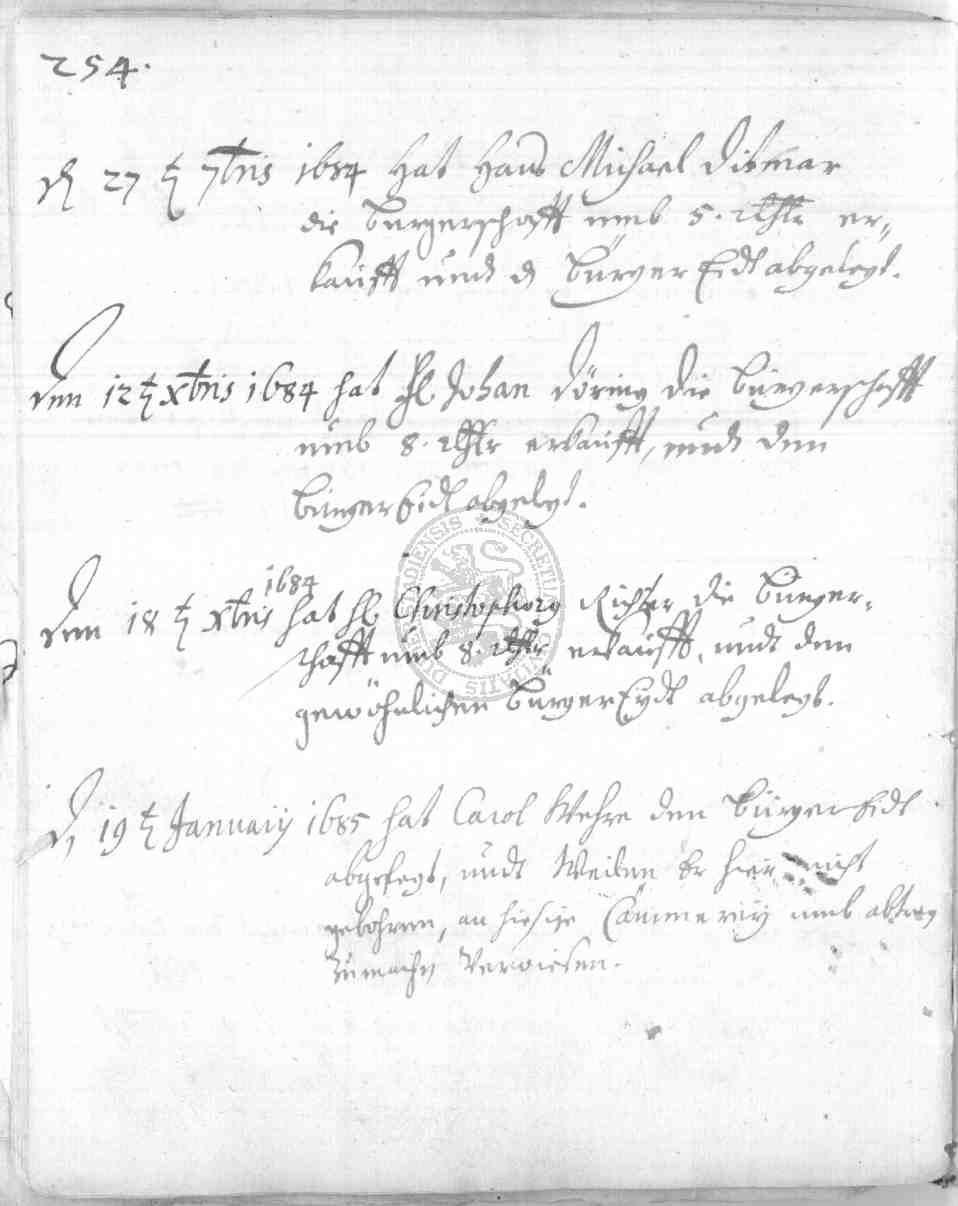 254.
d 27 t 7bris 1684 Hat Hans Michael Ditmar
die Bürgerschafft umb 5. rthlr er=
kaufft undt d Bürger Eidt abgelegt.
Den 12 t xbris 1684 hat H Johan Döring die Bürgerschafft
umb 8. rthlr erkaufft, undt den
Bürger Eidt abgelegt.
1684
Den 18 t xbris hat H Christophorg Richter die Bürger-
schafft umb 8. rthlr erkaufft, undt den
gewöhnlichen Bürger Eydt abgelegt.
D 19 t January 1685 hat Carol Wehre den Bürger Eidt
abgelegt, undt Weilen Er hier nicht
gebohren, an hiesige Cämmerey umb abtrag
zumachen Verwiesen.
SECRETUM CIVITATIS